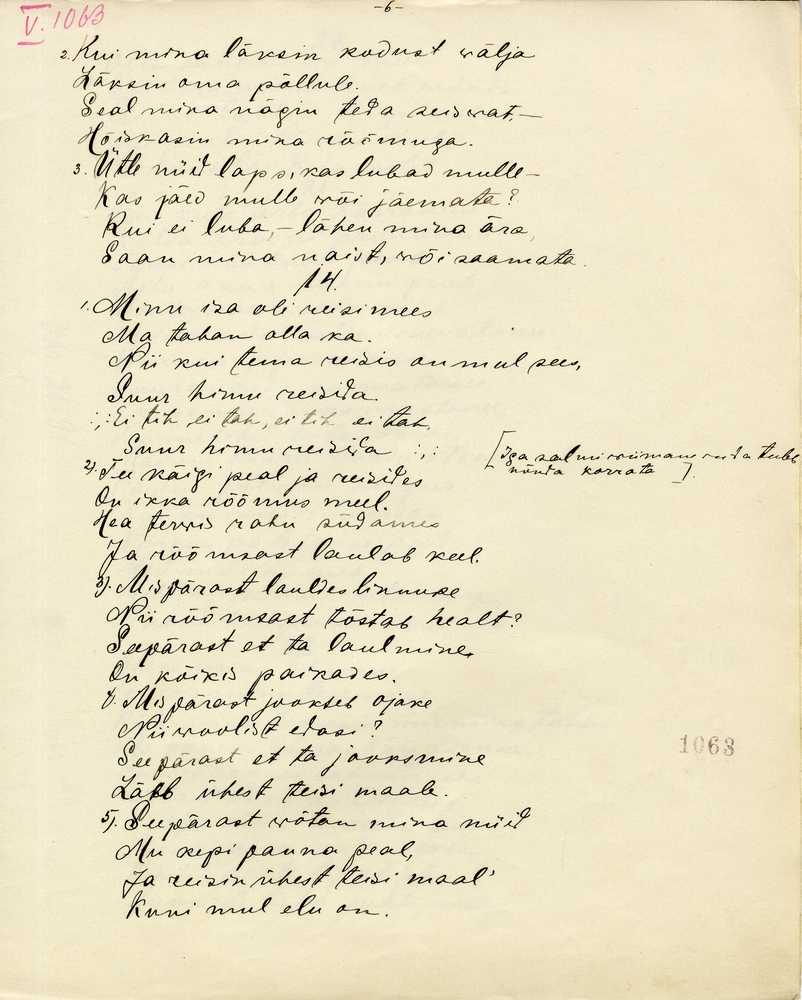 V. 1063
-6-
2. Kui mina läksin kodust wälja
Läksin oma põllule.
Seal mina nägin teda seiswat, –
Hõiskasin mina rõõmuga.
3. Ütle nüid laps, kas lubad mulle –
Kas jäed mulle wõi jäemata?
Kui ei luba, – lähen mina ära,
Saan mina naist, wõi saamata.
14.
1. Minu isa oli reisimees
Ma tahan olla ka.
Nii kui tema reisis on mul sees,
Suur himu reisida.
:,: Ei tih, ei tah, ei tih ei tah,
Suur himu reisida :,:
[Iga salmi wiimane rida tuleb
nõnda korrata].
2). Tee käigi peal ja reisides
On ikka rõõmus meel.
Hea terwis rahu südames
Ja rõõmsast laulab keel.
3). Mispärast lauldes linnuke
Nii rõõmsast tõstab healt?
Seepärast et ta laulmine,
On kõikis paikades.
4. Mispärast jookseb ojake
Nii woolist edasi?
Seepärast et ta jooksmine
Lääb ühest teisi maale.
1063
5). Seepärast wõtan mina nüid
Mu kepi pauna peal,
Ja reisin ühest teisi maal'
Kuni mul elu on.